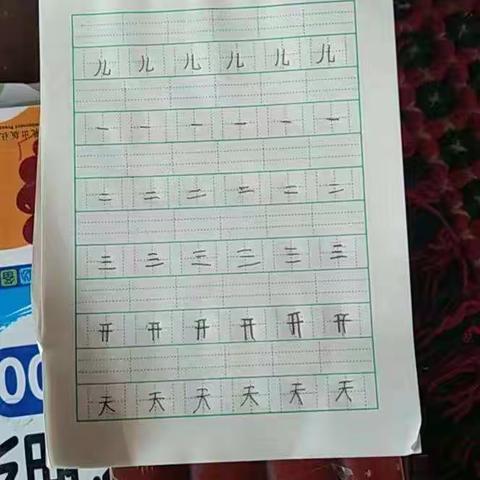 儿 儿 儿 儿 儿 儿
一 一 一 一 一 一
二 二 二 二 二 二
三 三 三 三 三 三
开 开 开 开 开 开
天 天 天 天 天 天